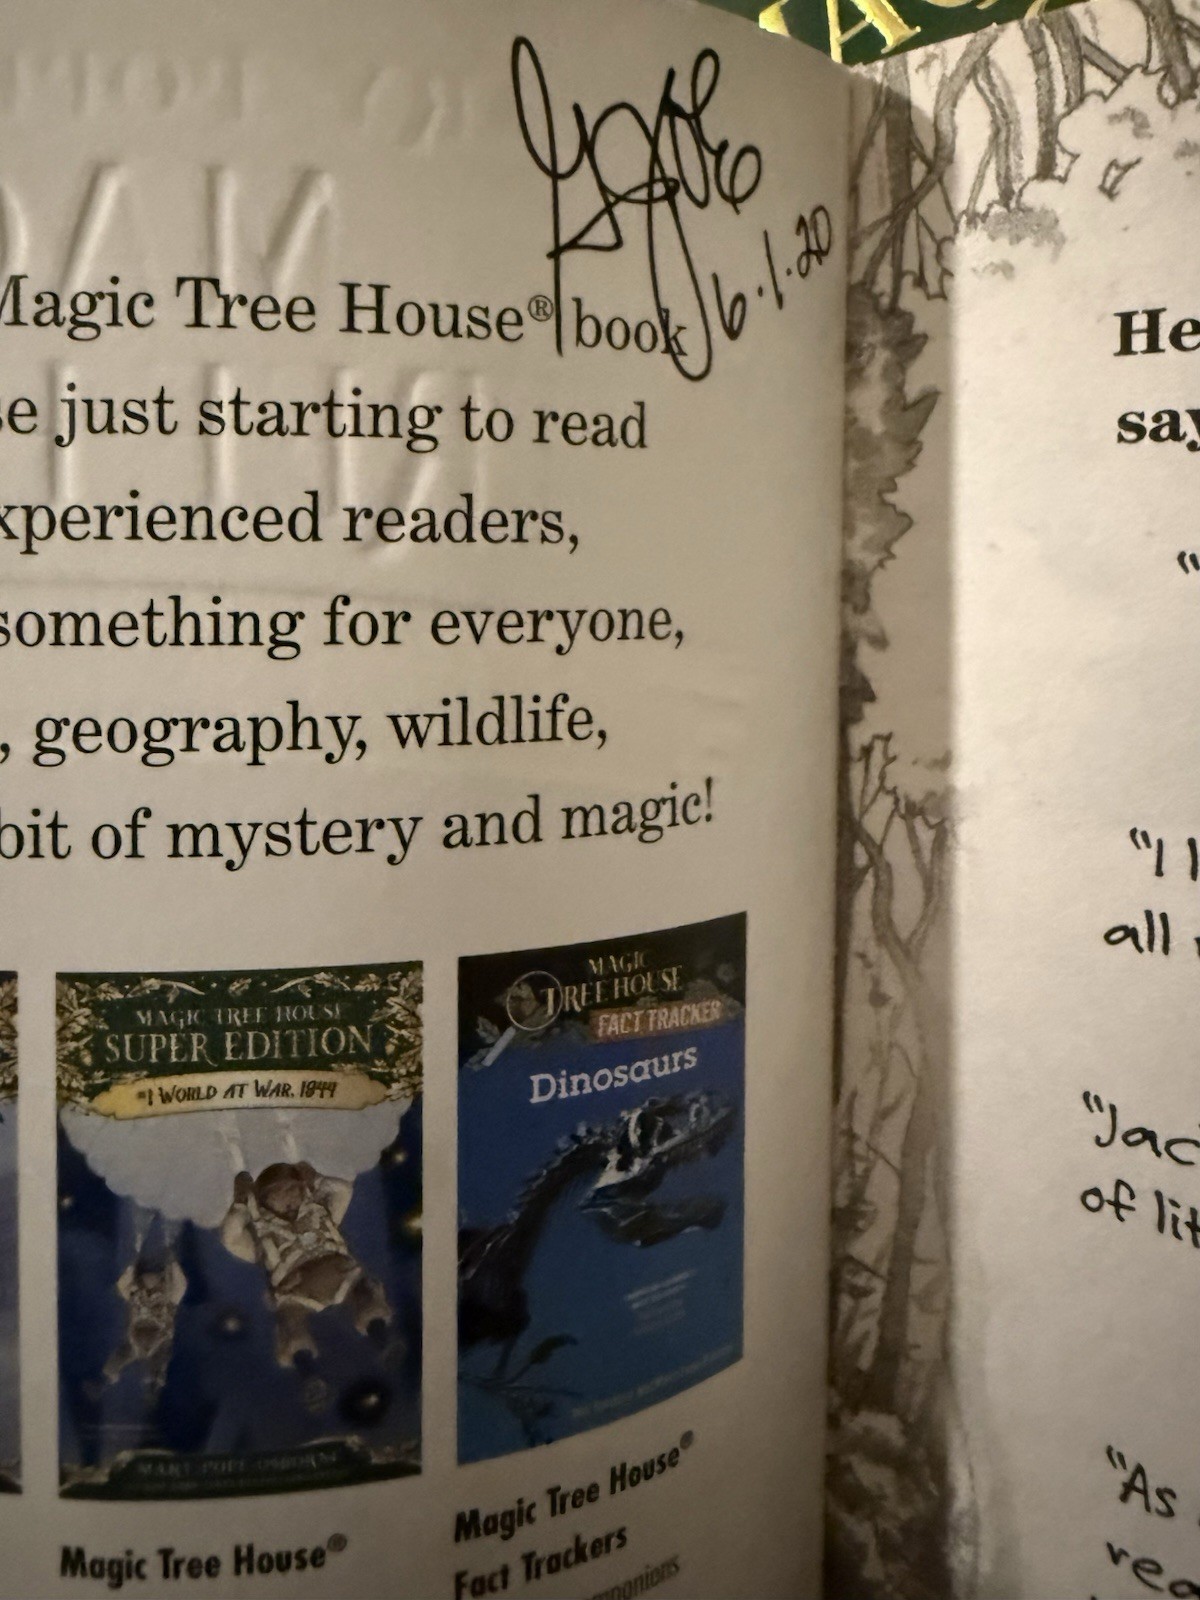 6.1.20
Magic Tree House® book
se just starting to read
xperienced readers,
something for everyone,
, geography, wildlife,
bit of mystery and magic!
MAGIC TREE HOUSE
SUPER EDITION
#1 WORLD AT WAR, 1944
MARY POPE OSBORNE
Magic Tree House®
MAGIC
TREE HOUSE
FACT TRACKER
Dinosaurs
Magic Tree House®
Fact Trackers
mpanions
He
say
"
"I l
all
"Jac
of lit
"As
rea